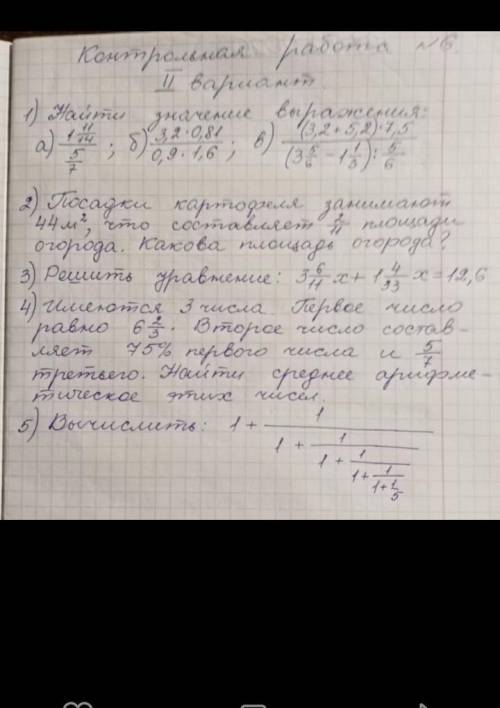 Контрольная работа №6.
II вариант.
1) Найти значение выражения:
а) (1 11/14)/(5/7); б) (3,2·0,81)/(0,9·1,6); в) ((3,2+5,2)·7,5)/((3 5/6 − 1 1/3):5/6)
2) Посадки картофеля занимают
44м², что составляет 2/11 площади
огорода. Какова площадь огорода?
3) Решить уравнение: 3 6/11 x + 1 4/33 x = 12,6
4) Имеются 3 числа. Первое число
равно 6 2/3. Второе число состав-
ляет 75% первого числа и 5/7
третьего. Найти среднее арифме-
тическое этих чисел.
5) Вычислить: 1+1/(1+1/(1+1/(1+1/(1+1/5))))